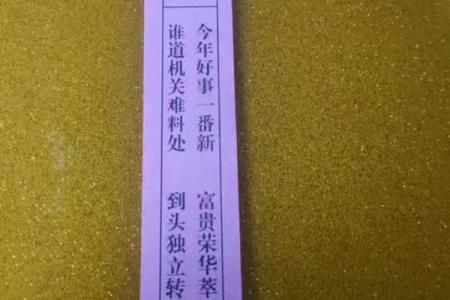 今年好事一番新 富贵荣华萃
谁道机关难料处 到头独立转